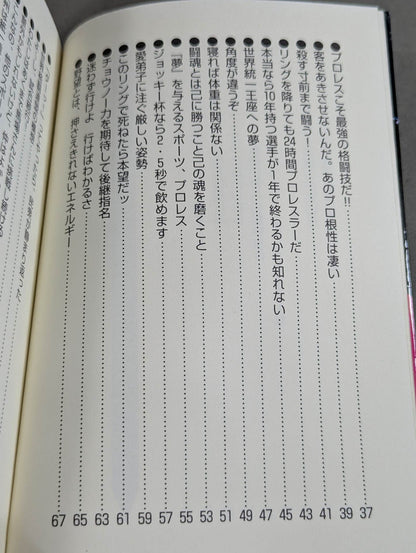 ●プロレスこそ最強の格闘技だ!!……37
●客をあきさせないんだ。あのプロ根性は凄い……39
●殺す寸前まで闘う！……41
●リングを降りても24時間プロレスラーだ……43
●本当なら10年持つ選手が1年で終わるかも知れない……45
●世界統一王座への夢……47
●角度が違うぞ……49
●寝れば体重は関係ない……51
●闘魂とは己に勝つこと己の魂を磨くこと……53
●『夢』を与えるスポーツ、プロレス……55
●ジョッキー杯なら2・5秒で飲めます……57
●愛弟子に注ぐ厳しい姿勢……59
●このリングで死ねたら本望だッ……61
●チョウノー力を期待して後継指名……63
●迷わず行けよ 行けばわかるさ……65
●野望とは、押さえきれないエネルギー……67